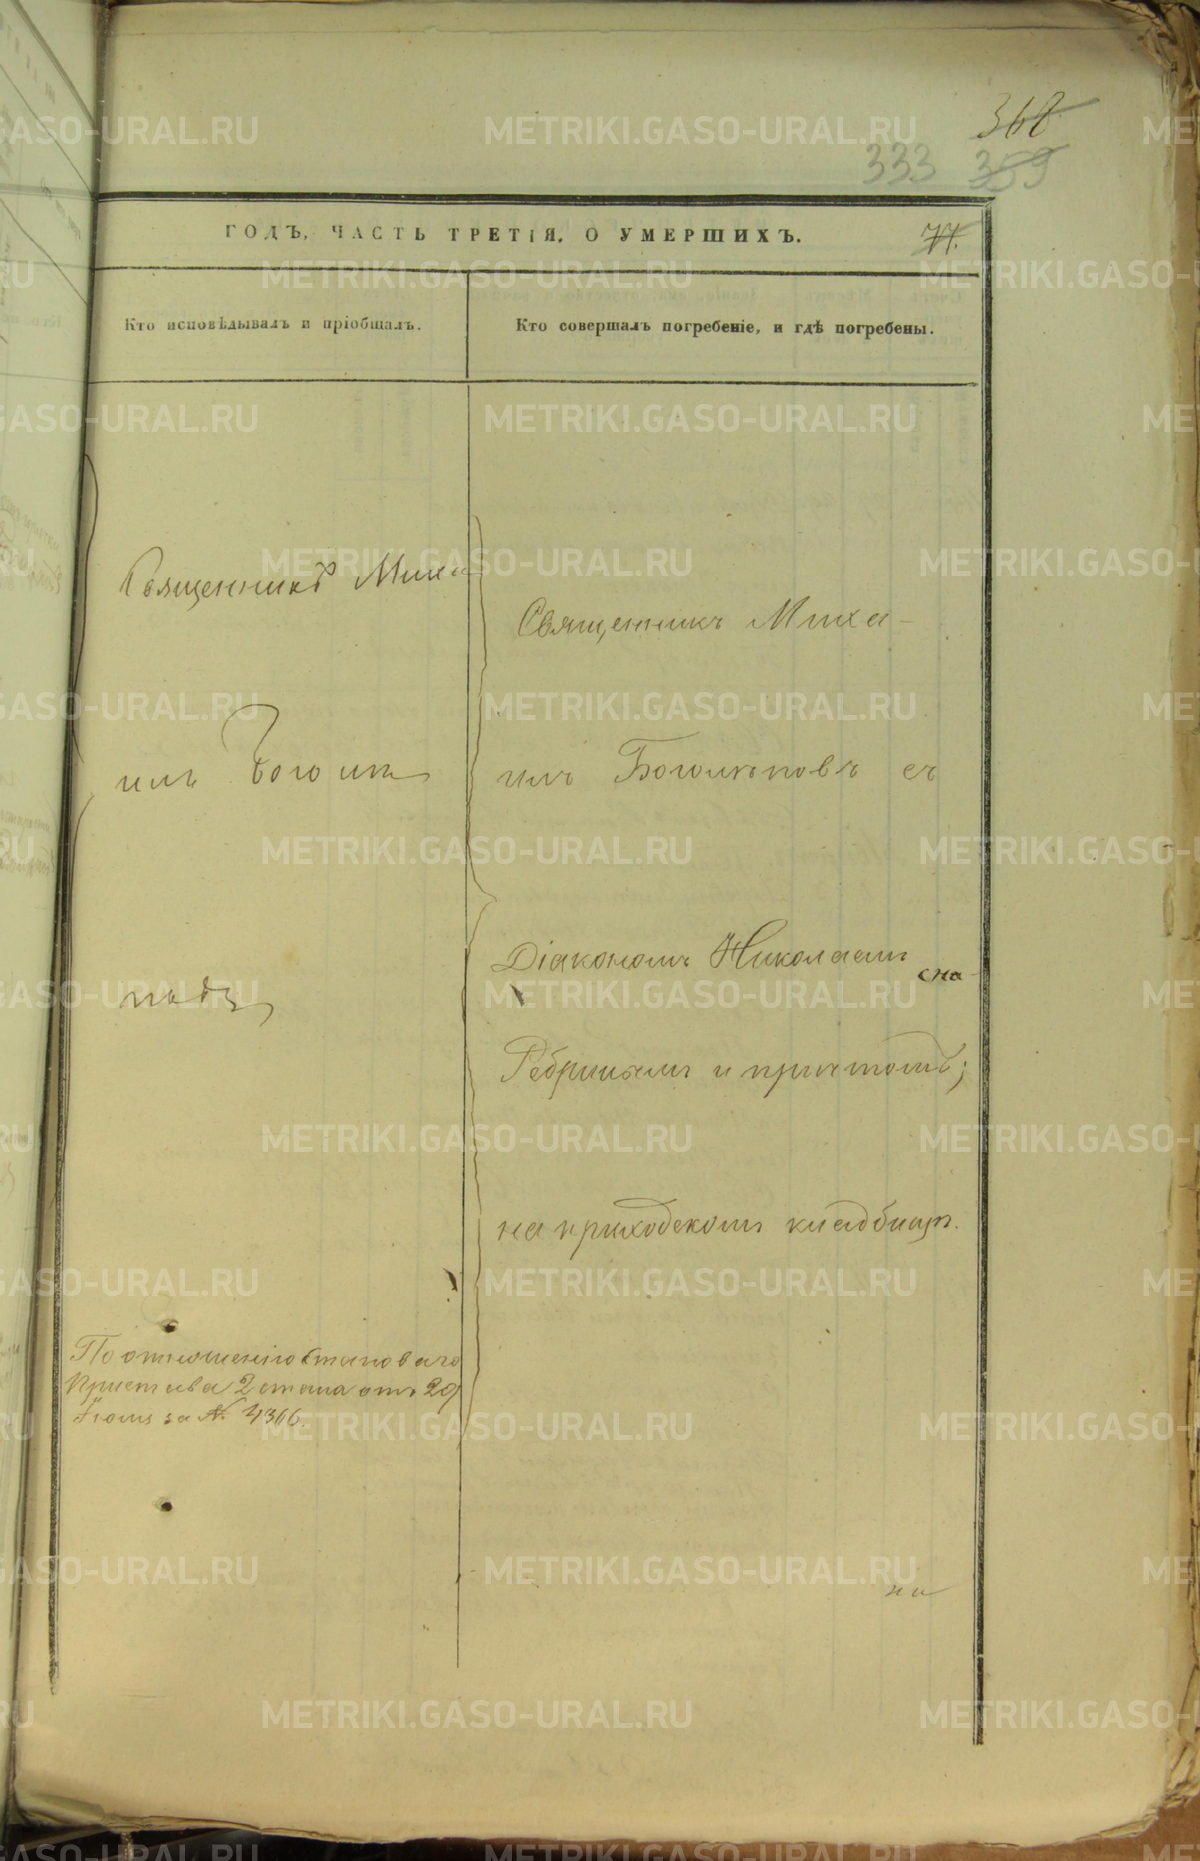 368
333 359
ГОДЪ, ЧАСТЬ ТРЕТІЯ, О УМЕРШИХЪ.
77.
Кто исповѣдывалъ и пріобщалъ.
Кто совершалъ погребеніе, и гдѣ погребены.
Священникъ Миха
илъ Боголѣ
повъ
Священникъ Миха-
илъ Боголѣповъ съ
Діакономъ Николаемъ
Ребринымъ и причтомъ;
на приходскомъ кладбищѣ.
По отношенію Становаго
Пристава 2 стана отъ 29
за № 4366.
METRIKI.GASO-URAL.RU